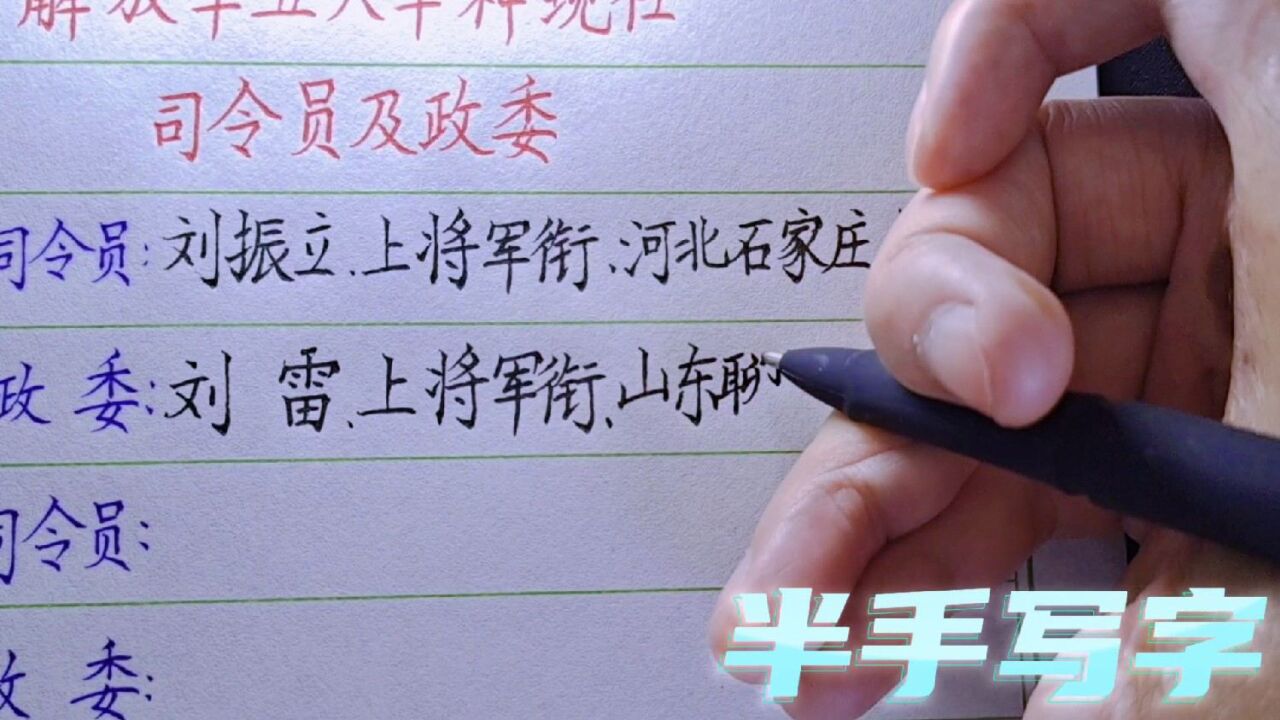 解放军五大军种现任
司令员及政委
司令员:刘振立、上将军衔、河北石家庄
政委:刘雷、上将军衔、山东聊
司令员:
政委:
半手写字